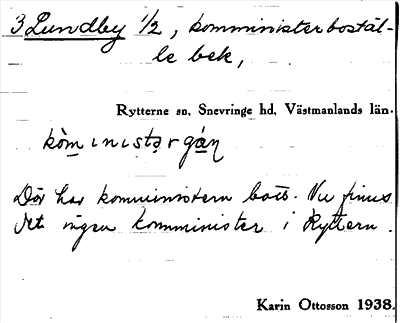 3 Lundby 1/2, komministerbostäl-
le bek,
Rytterne sn, Snevringe hd, Västmanlands län.
kòministərgán
Där har komministern bott. Nu finns
det ingen komminister i Ryttern.
Karin Ottosson 1938.